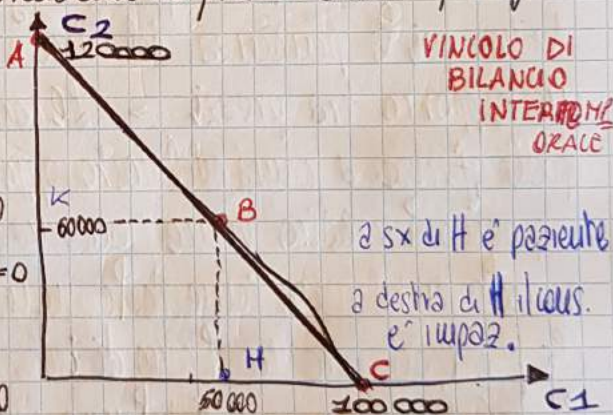 C2
A
120000
VINCOLO DI
BILANCIO
INTERTEMP
ORALE
K
60000
B
a sx di H e' paziente
=0
a destra di H il cons.
e' impaz.
H
C
50000
100 000
C1